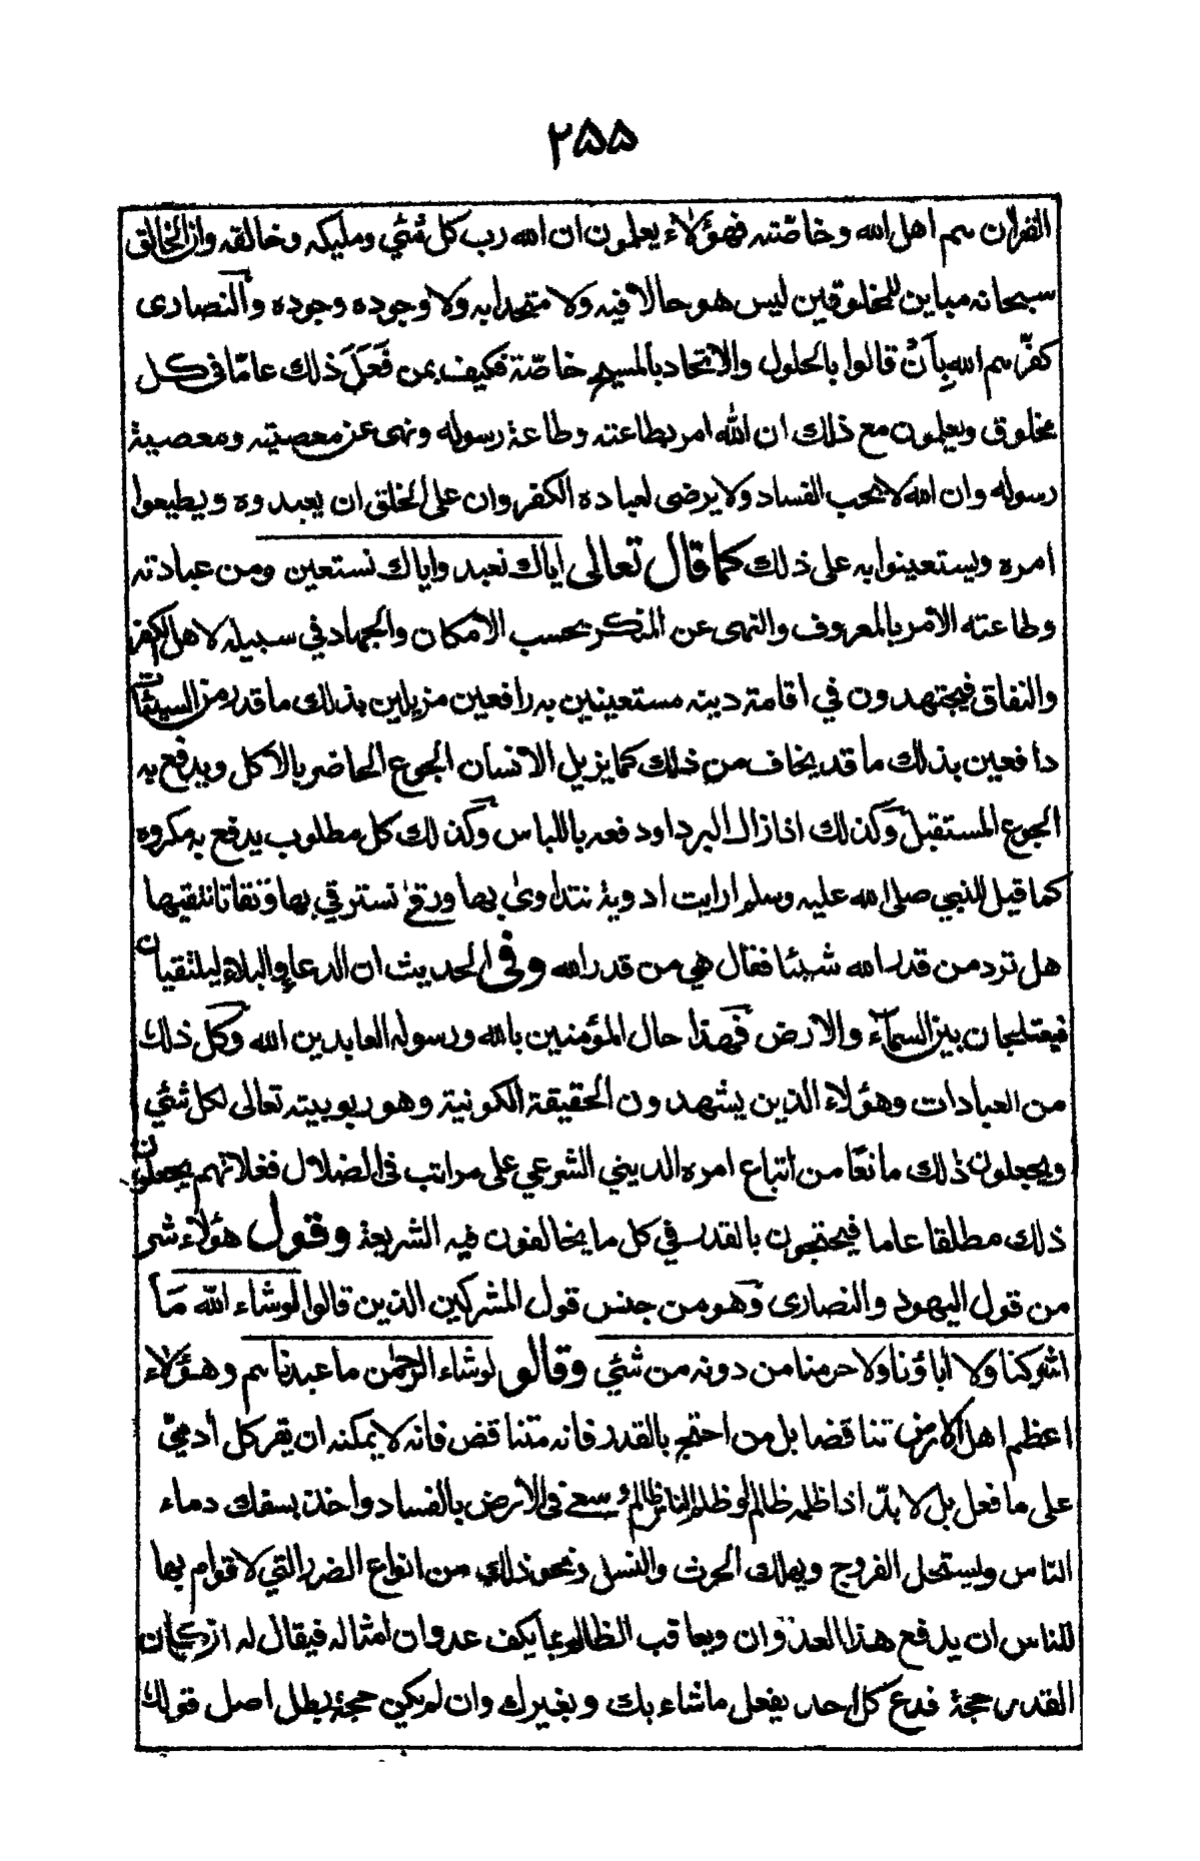 ۲۵۵
القرآن هم اهل الله وخاصته فهؤلاء يعلمون ان الله رب كل شئي ومليكه وخالقه وان الخالق
سبحانه مباين للمخلوقين ليس هو حالا فيه ولا متحدا به ولا وجوده وجوده والنصارى
كفّرهم الله بِاَنْ قالوا بالحلول والاتحاد بالمسيح خاصّة فكيف بمن جَعَلَ ذلك عامّا فى كل
مخلوق ويعلمون مع ذلك ان الله امر بطاعته وطاعة رسوله ونهى عن معصيته ومعصية
رسوله وان الله لا يحب الفساد ولا يرضى لعباده الكفر وان على الخلق ان يعبدوه ويطيعوا
امره ويستعينوا به على ذلك كما قال تعالى اياك نعبد واياك نستعين ومن عبادته
وطاعته الامر بالمعروف والنهى عن المنكر بحسب الامكان والجهاد في سبيله لاهل الكفر
والنفاق فيجتهدون في اقامة دينه مستعينين به رافعين مزيلين بذلك ما قدر من السيئات
دافعين بذلك ما قد يخاف من ذلك كما يزيل الانسان الجوع الحاضر بالاكل ويدفع به
الجوع المستقبل وكذلك اذا زال البرد اود فعه باللباس وكذلك كل مطلوب يدفع به مكروه
كما قيل للنبي صلى الله عليه وسلم ارايت ادوية نتداوى بها ورقى نسترقي بها وتقاة نتقيها
هل ترد من قدر الله شيئا فقال هي من قدر الله وفى الحديث ان الدعاء والبلاء ليلتقيان
فيعتلجان بين السماء والارض فهذا حال المؤمنين بالله ورسوله العابدين الله وكل ذلك
من العبادات وهؤلاء الذين يشهدون الحقيقة الكونية وهو ربوبيته تعالى لكل شئي
ويجعلون ذلك مانعًا من اتباع امره الديني الشرعي على مراتب فى الضلال فغلاتهم يجعلون
ذلك مطلقا عاما فيحتجون بالقدر في كل ما يخالفون فيه الشريعة وقول هؤلاء شر
من قول اليهود والنصارى وهو من جنس قول المشركين الذين قالوا لوشاء الله مَا
اشركنا ولا اٰباؤنا ولا حرمنا من دونه من شئي وقالو لوشاء الرحمٰن ما عبدناهم وهؤلاء
اعظم اهل الارض تناقضا بل من احتج بالقدر فانه متناقض فانه لا يمكنه ان يقر كل اٰدميّ
على ما فعل بل لا بدّ اذا ظلمه ظالم لو ظلم الناس ظالم وسعى فى الارض بالفساد واخذ يسفك دماء
الناس وليستحل الفروج ويهلك الحرث والنسل ونحو ذلك من انواع الضرر التي لا قوام بها
للناس ان يدفع هذا العدوان ويعاقب الظالم بما يكف عدوان امثاله فيقال له ان كان
القدر حجة فدع كل احد يفعل ما شاء بك وبغيرك وان لم يكن حجة بطل اصل قولك